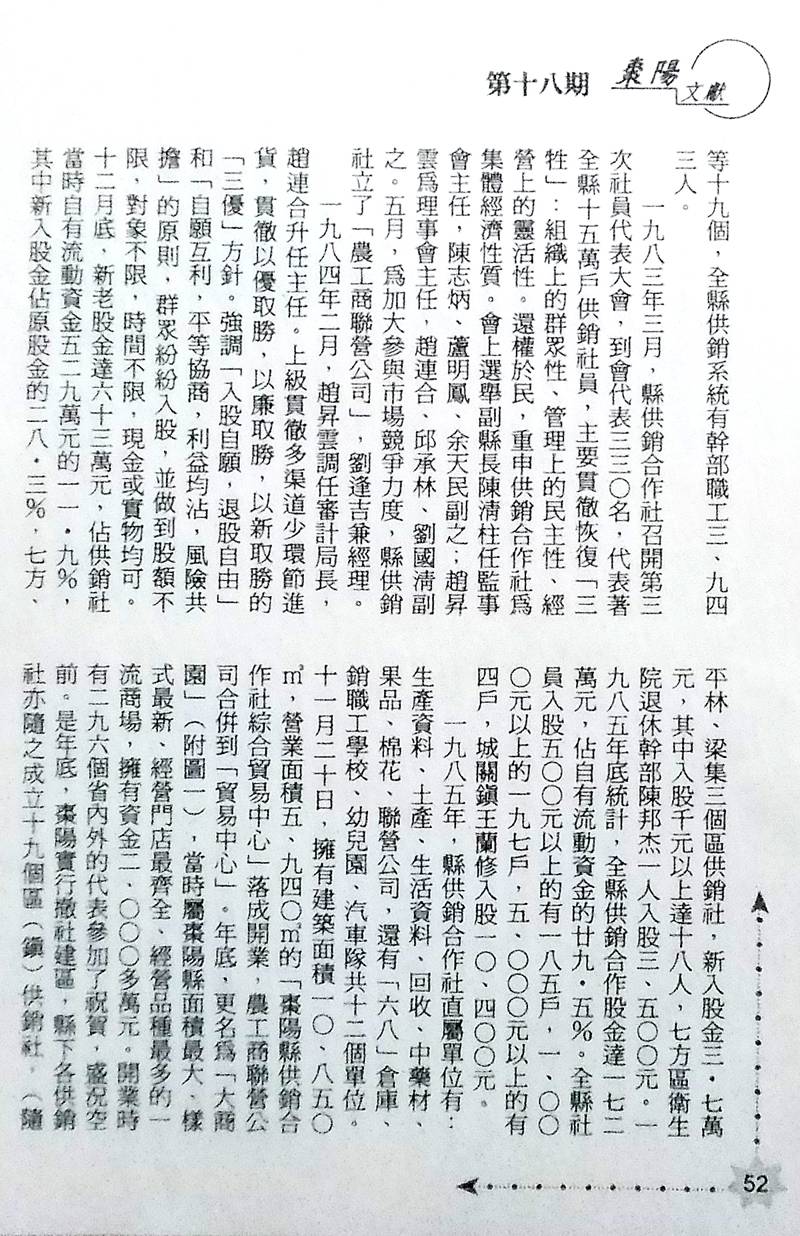 第十八期
棗陽
文獻
等十九個，全縣供銷系統有幹部職工三、九四
三人。
一九八三年三月，縣供銷合作社召開第三
次社員代表大會，到會代表三三〇名，代表著
全縣十五萬戶供銷社員，主要貫徹恢復「三
性」：組織上的群眾性、管理上的民主性、經
營上的靈活性。還權於民，重申供銷合作社爲
集體經濟性質。會上選舉副縣長陳清柱任監事
會主任，陳志炳、蘆明鳳、余天民副之；趙昇
雲爲理事會主任，趙連合、邱承林、劉國清副
之。五月，爲加大參與市場競爭力度，縣供銷
社立了「農工商聯營公司」，劉逢吉兼經理。
一九八四年二月，趙昇雲調任審計局長，
趙連合升任主任。上級貫徹多渠道少環節進
貨，貫徹以優取勝，以廉取勝，以新取勝的
「三優」方針。強調「入股自願，退股自由」
和「自願互利，平等協商，利益均沾，風險共
擔」的原則，群眾紛紛入股，並做到股額不
限，對象不限，時間不限，現金或實物均可。
十二月底，新老股金達六十三萬元，佔供銷社
當時自有流動資金五二九萬元的一一・九%，
其中新入股金佔原股金的二八・三%，七方、
平林、梁集三個區供銷社，新入股金三・七萬
元，其中入股千元以上達十八人，七方區衛生
院退休幹部陳邦杰一人入股三、五〇〇元。一
九八五年底統計，全縣供銷合作股金達一七二
萬元，佔自有流動資金的廿九・五%。全縣社
員入股五〇〇元以上的有一八五戶，一、〇〇
〇元以上的一九七戶，五、〇〇〇元以上的有
四戶，城關鎮王蘭修入股一〇、四〇〇元。
一九八五年，縣供銷合作社直屬單位有：
生產資料、土產、生活資料、回收、中藥材、
果品、棉花、聯營公司，還有「六八」倉庫、
銷職工學校、幼兒園、汽車隊共十二個單位。
十一月二十日，擁有建築面積一〇、八五〇
㎡，營業面積五、九四〇㎡的「棗陽縣供銷合
作社綜合貿易中心」落成開業，農工商聯營公
司合併到「貿易中心」。年底，更名爲「大商
園」（附圖一），當時屬棗陽縣面積最大、樣
式最新、經營門店最齊全、經營品種最多的一
流商場，擁有資金二、〇〇〇多萬元。開業時
有二九六個省內外的代表參加了祝賀，盛況空
前。是年底，棗陽實行撤社建區，縣下各供銷
社亦隨之成立十九個區（鎮）供銷社，（隨
52